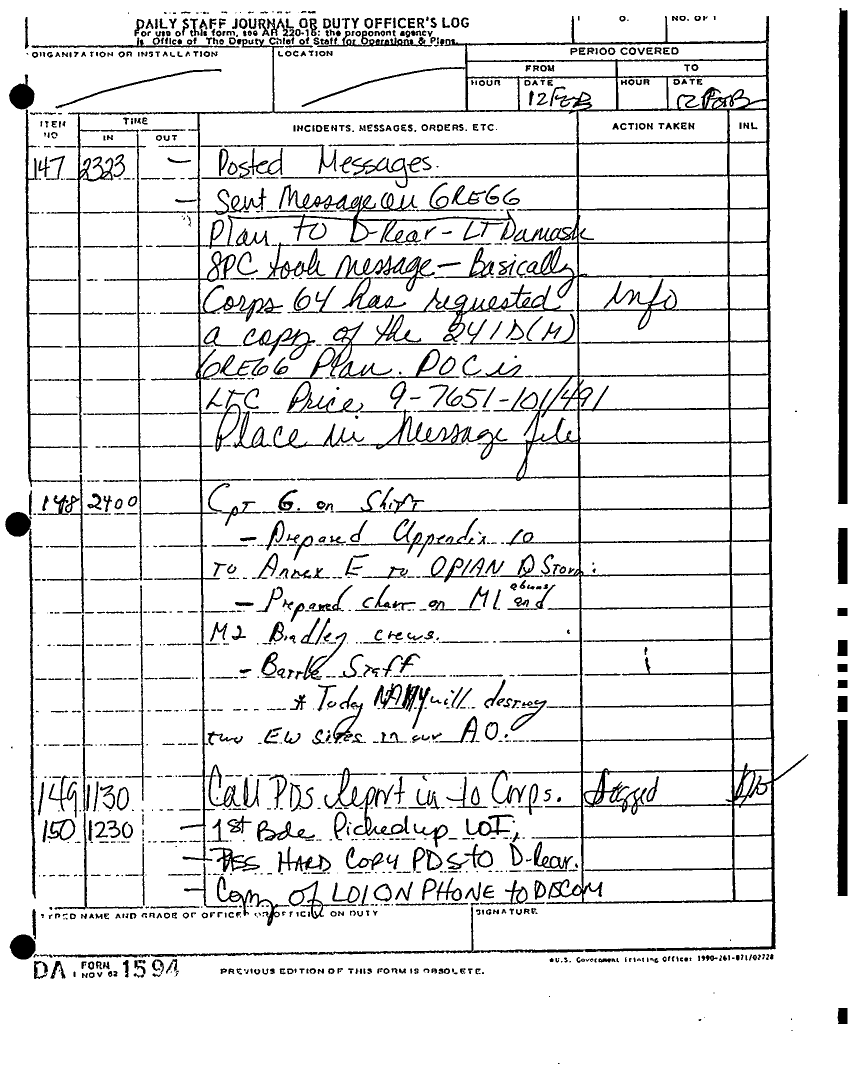 DAILY STAFF JOURNAL OR DUTY OFFICER'S LOG
For use of this form, see AR 220-15; the proponent agency
is Office of The Deputy Chief of Staff for Operations & Plans.
NO. OF
ORGANIZATION OR INSTALLATION
LOCATION
PERIOD COVERED
FROM
TO
HOUR
DATE
HOUR
DATE
12 FEB
12 FEB
ITEM NO
TIME
IN
OUT
INCIDENTS, MESSAGES, ORDERS, ETC.
ACTION TAKEN
INL
147 2323 — Posted Messages.
— Sent Message on GREGG
Plan to D-Rear - LT Damask
SPC took message — Basically
Corps G4 has requested info
a copy of the 24 ID(M)
GREGG Plan. POC is
LTC Price 9-7651-101/491
Place in Message file
148 2400 Cpt G. on Shift
— Prepared Appendix 10
to Annex E to OPLAN D Storm.
— Prepared chart on M1 abrams and
M2 Bradley crews.
- Battle Staff
* Today will destroy
two EW sites in our AO.
149 1130 Call PDS Report in to Corps. Logged
150 1230 — 1st Bde Picked up LOI,
— HARD COPY PDS to D-Rear.
— Copy of LOI ON PHONE to DISCOM
TYPED NAME AND GRADE OF OFFICER OR OFFICIAL ON DUTY
SIGNATURE
DA FORM 1 NOV 62 1594
PREVIOUS EDITION OF THIS FORM IS OBSOLETE.
*U.S. Government Printing Office: 1990-261-871/02728